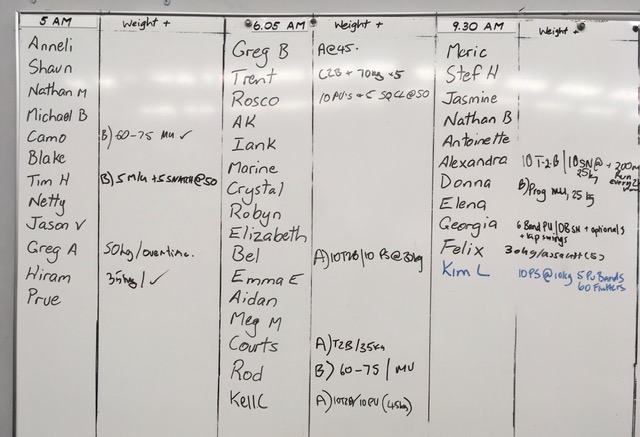 5 AM Weight +
Anneli
Shaun
Nathan M
Michael B
Camo B) 60-75 MU ✓
Blake
Tim H B) 5 M/U + 5 SNATCH @ 50
Netty
Jason V
Greg A 50kg/overtime.
Hiram 35kg/✓
Prue
6.05 AM Weight +
Greg B A@45.
Trent C2B + 70kg x5
Rosco 10 PU's + 5 SQ CL@50
AK
Iank
Marine
Crystal
Robyn
Elizabeth
Bel A) 10T2B/10 PS@30kg
Emma E
Aidan
Meg M
Courts A) T2B/35kg
Rod B) 60-75 | MU
Kell C A) 10T2B/10PU (45kg)
9.30 AM Weight +
Maric
Stef H
Jasmine
Nathan B
Antoinette
Alexandra 10 T-2-B | 10 SN@ 25kg + 200m Run every
Donna B) Prog MU, 25 kg
Elena
Georgia 6 Band PU | DB SN + optional s
+ swings
Felix 30kg
Kim L 10 PS@10kg 5 PU Bands
60 Flutters